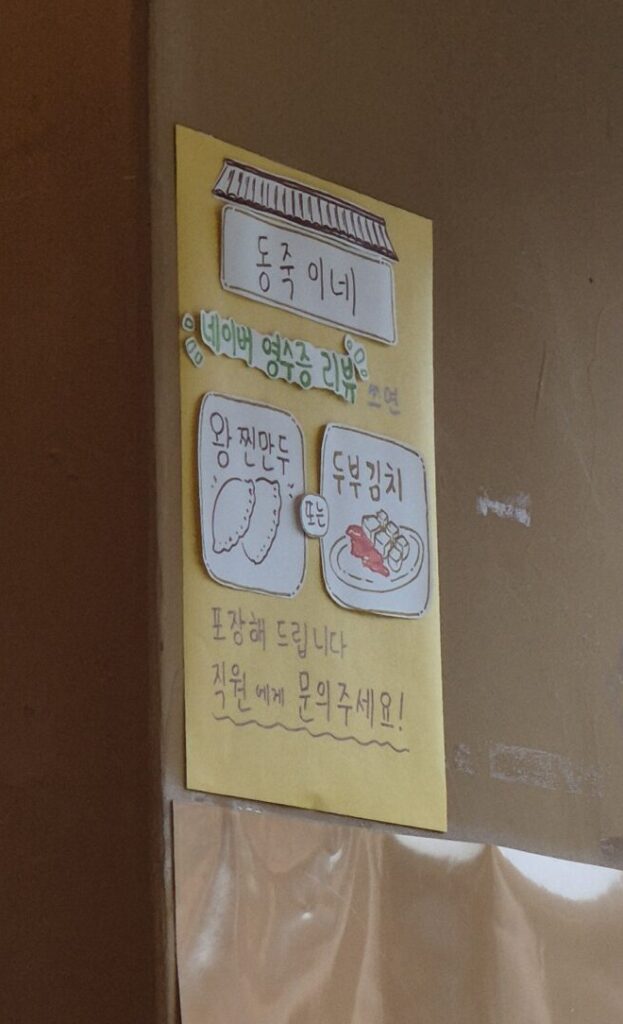 동죽이네
네이버 영수증 리뷰 쓰면
왕찐만두
또는
두부김치
포장해 드립니다
직원에게 문의주세요!